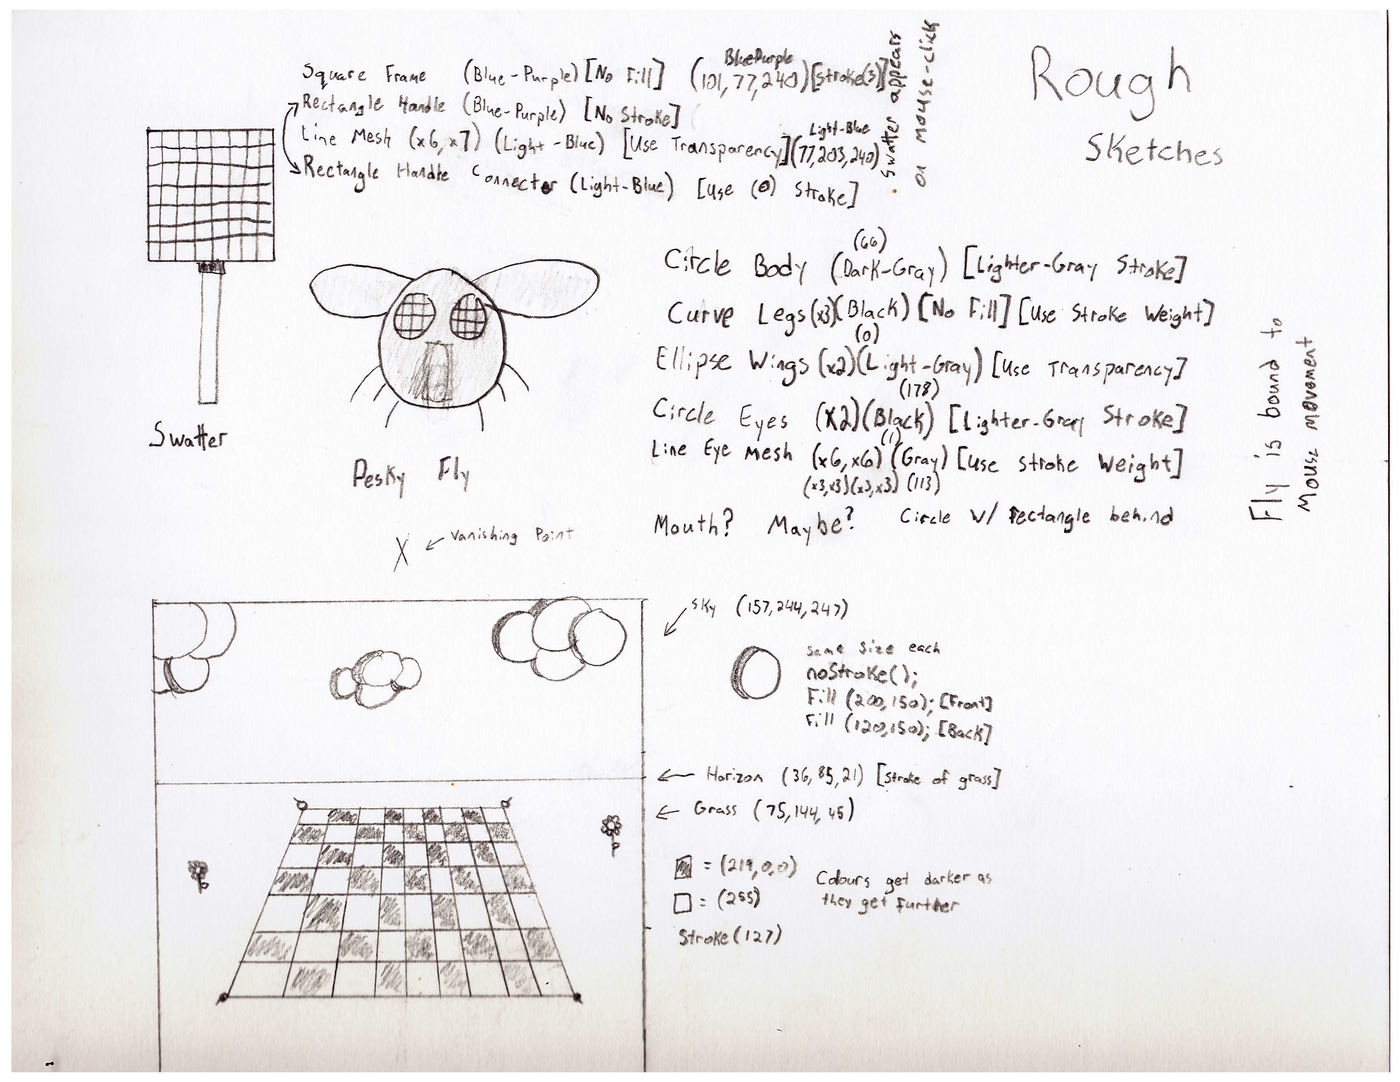 Rough
Sketches
Square Frame (Blue-Purple) [No Fill] (101,77,240) [Stroke(3)]
BluePurple
Rectangle Handle (Blue-Purple) [No Stroke]
Line Mesh (x6,x7) (Light-Blue) [Use Transparency] (77,203,240)
Light-Blue
Rectangle Handle Connector (Light-Blue) [Use (0) Stroke]
• Swatter appears
on mouse-click
Swatter
Pesky Fly
Circle Body (Dark-Gray) [Lighter-Gray Stroke]
(66)
Curve Legs (x3) (Black) [No Fill] [Use Stroke Weight]
(0)
Ellipse Wings (x2) (Light-Gray) [Use Transparency]
(178)
Circle Eyes (x2) (Black) [Lighter-Gray Stroke]
(1)
Line Eye Mesh (x6,x6) (Gray) [Use Stroke Weight]
(x3,x3)(x3,x3) (113)
Mouth? Maybe? Circle w/ rectangle behind
Fly is bound to
Mouse movement
X ← Vanishing Point
Sky (157,244,247)
Same size each
noStroke();
Fill (200,150); [Front]
Fill (120,150); [Back]
← Horizon (36,85,21) [Stroke of grass]
← Grass (75,144,45)
= (219,0,0)
= (255)
Colours get darker as
they get further
Stroke (127)